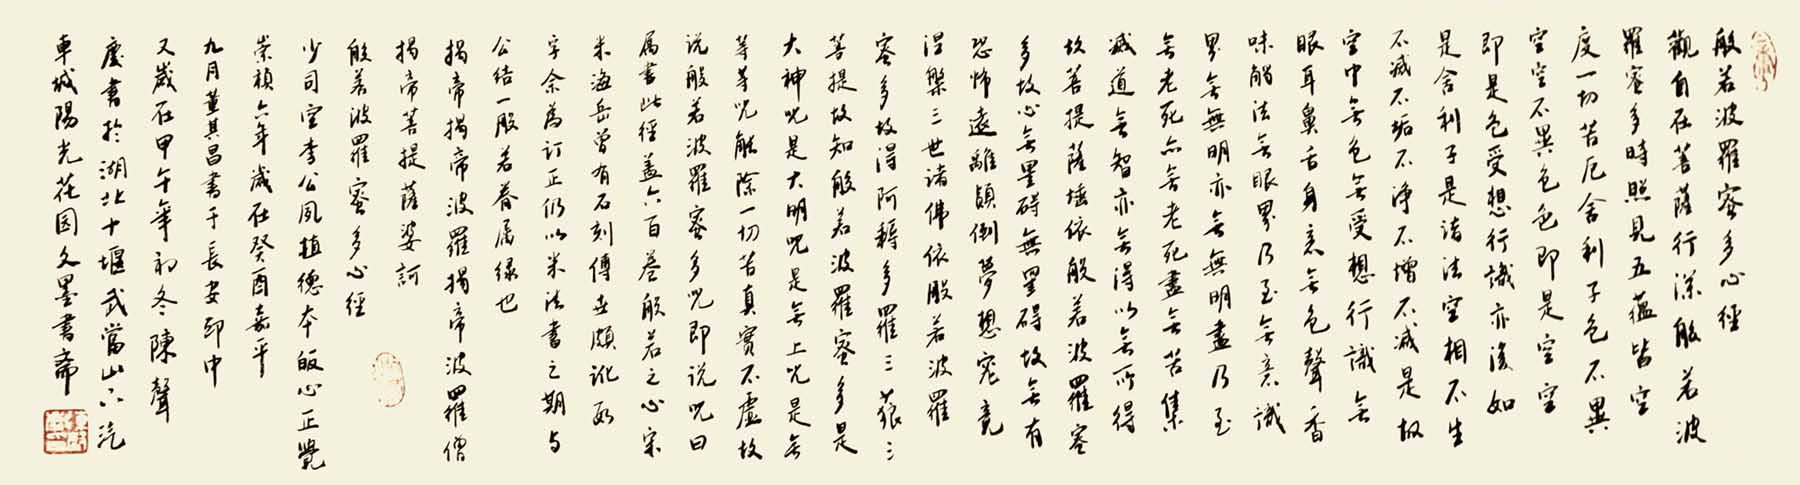 般若波羅蜜多心經
觀自在菩薩行深般若波
羅蜜多時照見五蘊皆空
度一切苦厄舍利子色不異
空空不異色色即是空空
即是色受想行識亦復如
是舍利子是諸法空相不生
不滅不垢不淨不增不减是故
空中無色無受想行識無
眼耳鼻舌身意無色聲香
味觸法無眼界乃至無意識
界無無明亦無無明盡乃至
無老死亦無老死盡無苦集
滅道無智亦無得以無所得
故菩提薩埵依般若波羅蜜
多故心無罣碍無罣碍故無有
恐怖遠離顛倒夢想究竟
涅槃三世诸佛依般若波羅
蜜多故得阿耨多羅三藐三
菩提故知般若波羅蜜多是
大神咒是大明咒是無上咒是無
等等咒能除一切苦真實不虛故
说般若波羅蜜多咒即说咒曰
属書此經蓋六百卷般若之心宋
米海岳曾有石刻傳世頗訛数
字余為訂正仍以米法書之期与
公结一般若眷属缘也
揭帝揭帝波羅揭帝波羅僧
揭帝菩提薩婆訶
般若波羅蜜多心經
少司空李公夙植德本皈心正覺
崇禎六年歲在癸酉嘉平
九月董其昌書于長安邸中
又歲在甲午年初冬陳聲
慶書於湖北十堰武當山下汽
車城陽光花园文墨書斋